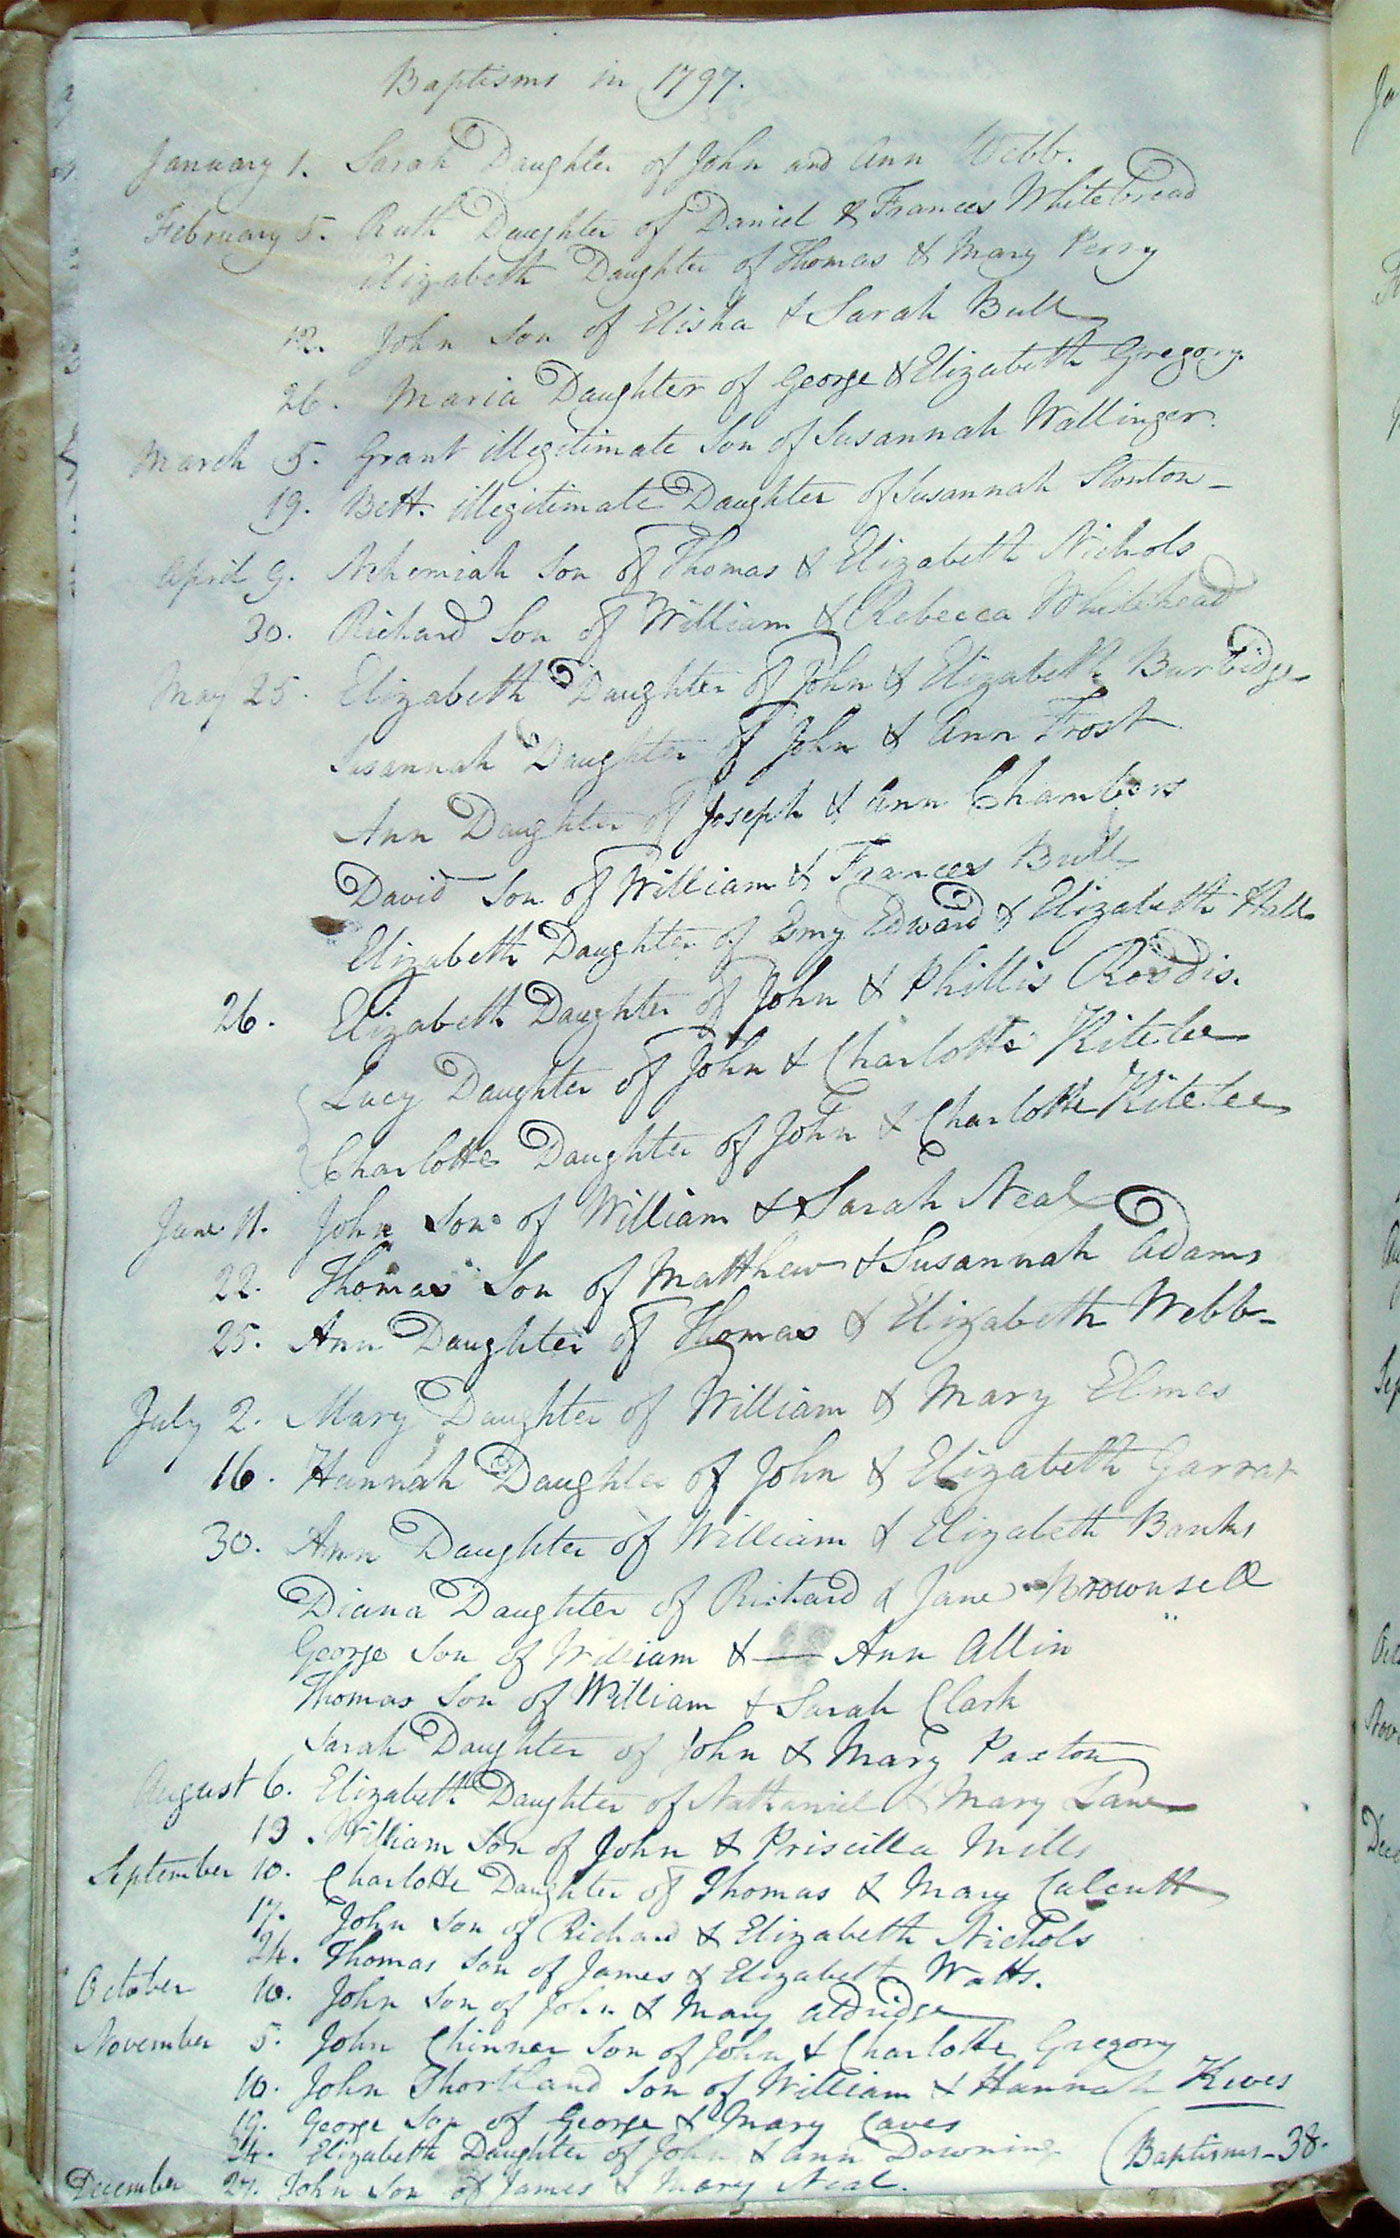 Baptisms in 1797.
January 1. Sarah Daughter of John and Ann Webb.
February 5. Ruth Daughter of Daniel & Frances Whitebread
Elizabeth Daughter of Thomas & Mary Perry
12. John Son of Elisha & Sarah Bull
26. Maria Daughter of George & Elizabeth Gregory.
March 5. Grant illegitimate Son of Susannah Wallinger.
19. Bett. illegitimate Daughter of Susannah Stonton -
April 9. Nehemiah Son of Thomas & Elizabeth Nichols
30. Richard Son of William & Rebecca Whitehead
May 25. Elizabeth Daughter of John & Elizabeth Burbidge
Susannah Daughter of John & Ann Frost
Ann Daughter of Joseph & Ann Chambers
David Son of William & Frances Bull
Elizabeth Daughter of Edward & Elizabeth Hall
26. Elizabeth Daughter of John & Phillis Roddis.
Lucy Daughter of John & Charlotte Kitelee
Charlotte Daughter of John & Charlotte Kitelee
June 11. John Son of William & Sarah Neal
22. Thomas Son of Matthew & Susannah Adams
25. Ann Daughter of Thomas & Elizabeth Webb -
July 2. Mary Daughter of William & Mary Elmes
16. Hannah Daughter of John & Elizabeth Garrat
30. Ann Daughter of William & Elizabeth Banks
Diana Daughter of Richard & Jane Brownsell
George Son of William & Ann Allin
Thomas Son of William & Sarah Clark
Sarah Daughter of John & Mary Paxton
August 6. Elizabeth Daughter of Nathaniel & Mary Lane
13. William Son of John & Priscilla Mills
September 10. Charlotte Daughter of Thomas & Mary Calcutt
17. John Son of Richard & Elizabeth Nichols
24. Thomas Son of James & Elizabeth Watts.
October 10. John Son of John & Mary Aldridge
November 5. John Chinner Son of John & Charlotte Gregory
10. John Shortland Son of William & Hannah Kives
19. George Son of George & Mary Caves
24. Elizabeth Daughter of John & Ann Downing (Baptisms - 38.
December 27. John Son of James & Mary Neal.